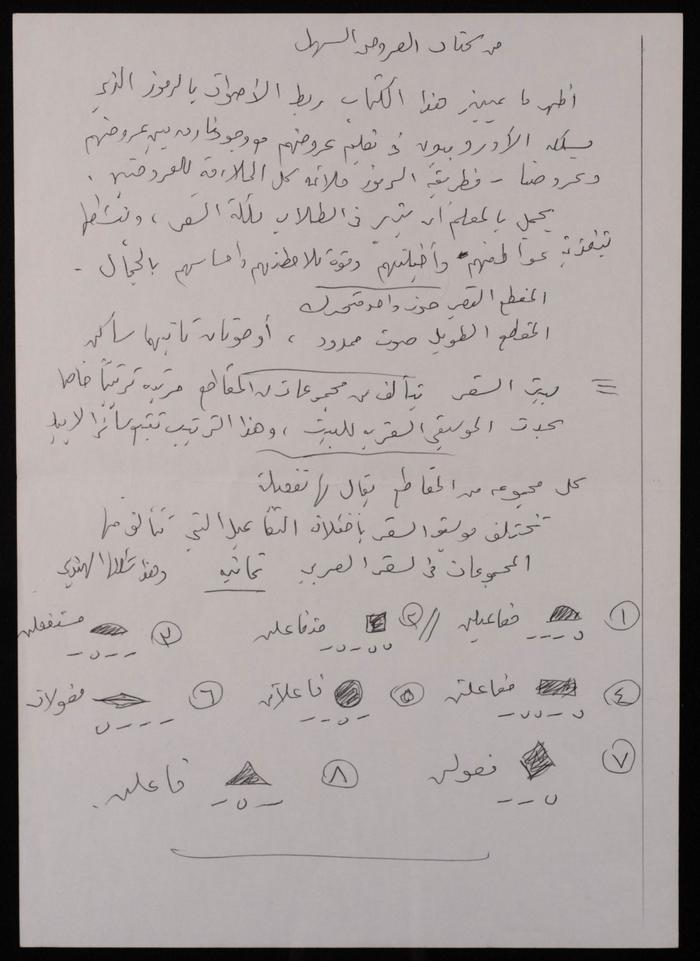 من كتاب العروض السهل
أظهر ما يميز هذا الكتاب ربط الأصوات بالرموز الذي
يسلكه الأوروبيون في تعليم عروضهم مع وجود فارق بين عروضهم
وعروضنا - فطريقة الرموز ملائمة كل الملاءمة للعروضين .
يجمل بالمعلم أن يثير في الطلاب ملكة الشعر ، وينشط
بتغذية عواطفهم وأخيلتهم وقوة ملاحظتهم وإحساسهم بالجمال -
المقطع القصير صوت واحد متحرك
المقطع الطويل صوت ممدود ، أو صوتان ثانيهما ساكن
= بيت الشعر يتألف من مجموعات من المقاطع مرتبة ترتيبًا خاصا
يحدث الموسيقى الشعرية للبيت ، وهذا الترتيب تتبع سائر
كل مجموعة من المقاطع يقال لها تفعيلة
تختلف موسيقى الشعر باختلاف التفاعيل التي تتألف منها
المجموعات في الشعر العربي ثمانية وهذا شكلها الهندسي
١ مفاعيلن // ٢ متفاعلن ٣ مستفعلن
٤ مفاعلتن ٥ فاعلاتن ٦ مفعولات
٧ فعولن ٨ فاعلن .